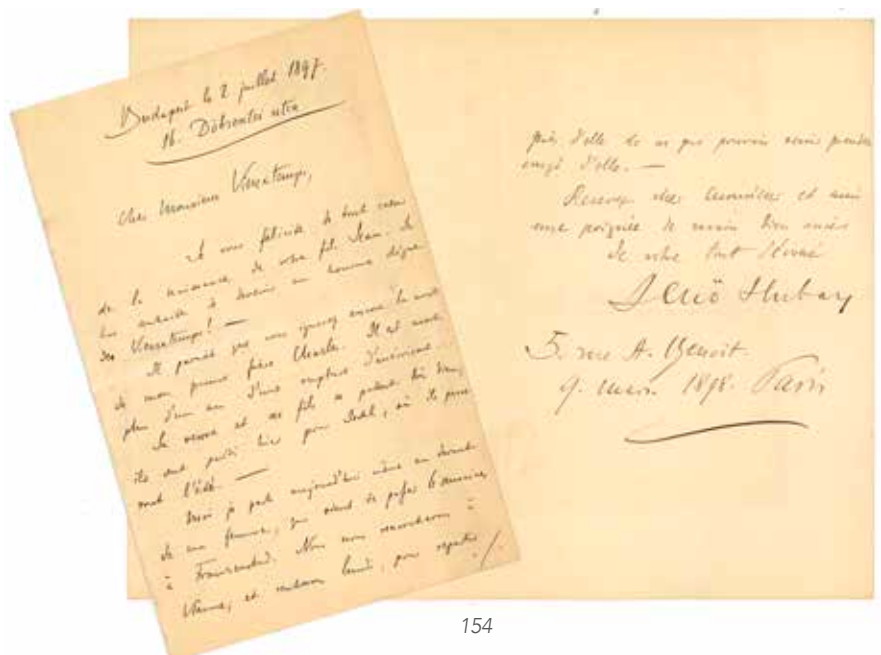 Budapest le 2 juillet 1897.
16. Döbrentei utca
Cher Monsieur Vieuxtemps,
Je vous félicite de tout coeur
de la naissance de votre fils Jean. Je
lui souhaite de devenir un homme digne
des Vieuxtemps! —
Il paraît que vous ignorez encore la mort
de mon pauvre frère Charles. Il est mort
plus d'un an d'une rupture d'anévrisme.
Sa veuve et ses fils se portent très bien,
ils sont partis hier pour Ischl, où ils passe
ront l'été. —
Moi je pars aujourd'hui même au devant
de ma femme, qui vient de passer 6 semaines
à Franzensbad. Nous nous rencontrerons à
Vienne, et rentrerons lundi, pour repartir ./.
près d'elle de ce que pouvoir venir prendre
congé d'elle. —
Recevez cher Monsieur et ami
une poignée de main bien sincère
de votre tout dévoué
Jenö Hubay
5. rue A. Benoit.
9. mars. 1898. Paris
154